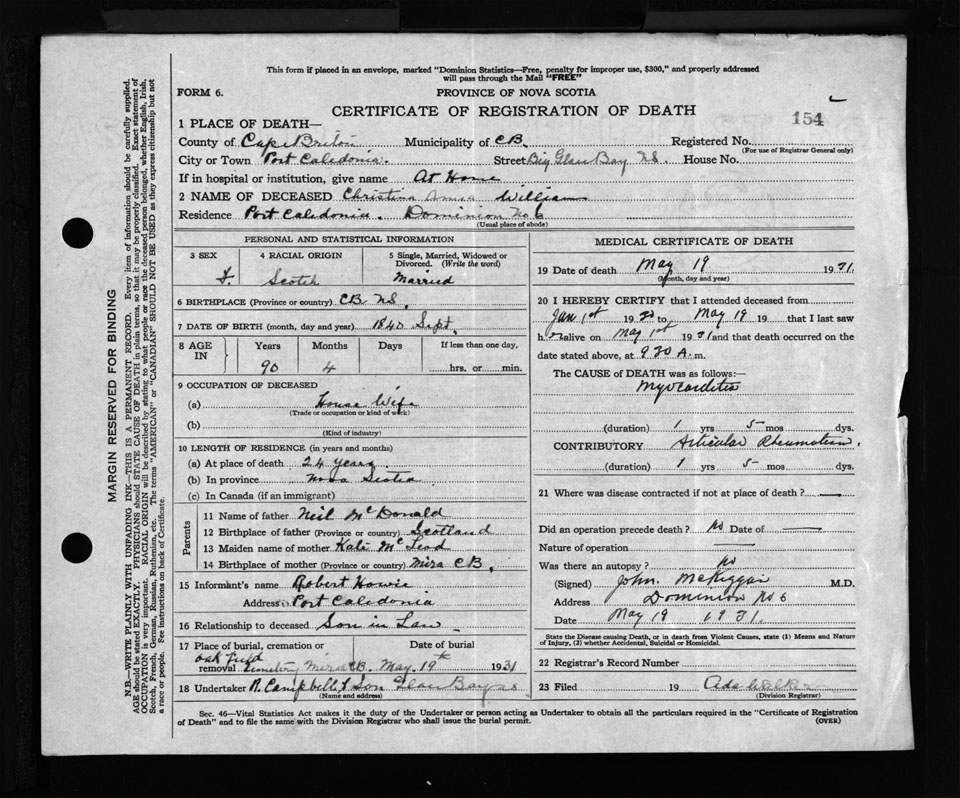 This form if placed in an envelope, marked "Dominion Statistics—Free, penalty for improper use, $300," and properly addressed
will pass through the Mail "FREE"
FORM 6.
PROVINCE OF NOVA SCOTIA
CERTIFICATE OF REGISTRATION OF DEATH
154
1 PLACE OF DEATH—
County of Cape Breton Municipality of CB. Registered No.
(For use of Registrar General only)
City or Town Port Caledonia. Street Big Glace Bay N.S. House No.
If in hospital or institution, give name At Home
2 NAME OF DECEASED Christina Williams
Residence Port Caledonia. Dominion No 6
(Usual place of abode)
PERSONAL AND STATISTICAL INFORMATION
3 SEX 4 RACIAL ORIGIN 5 Single, Married, Widowed or
Divorced. (Write the word)
F. Scotch Married
6 BIRTHPLACE (Province or country) CB NS.
7 DATE OF BIRTH (month, day and year) 1840 Sept.
8 AGE IN Years Months Days If less than one day,
90 4 hrs. or min.
9 OCCUPATION OF DECEASED
(a) House Wife
(Trade or occupation or kind of work)
(b)
(Kind of industry)
10 LENGTH OF RESIDENCE (in years and months)
(a) At place of death 24 years
(b) In province Nova Scotia
(c) In Canada (if an immigrant)
Parents
11 Name of father Neil McDonald
12 Birthplace of father (Province or country) Scotland
13 Maiden name of mother Kate McLeod
14 Birthplace of mother (Province or country) Mira CB.
15 Informant's name Robert Howie
Address Port Caledonia
16 Relationship to deceased Son in Law
17 Place of burial, cremation or Date of burial
Oak Field
removal Cemetery Mira CB. May. 19th 1931
18 Undertaker N. Campbell & Son Glace Bay NS
(Name and address)
MEDICAL CERTIFICATE OF DEATH
19 Date of death May 19 1931.
(Month, day and year)
20 I HEREBY CERTIFY that I attended deceased from
Jan 1st 19 to May 19 19 that I last saw
h er alive on May 1st 1931 and that death occurred on the
date stated above, at 9 20 A. m.
The CAUSE of DEATH was as follows:—
Myocarditis
(duration) 1 yrs 5 mos dys.
CONTRIBUTORY Articular Rheumatism.
(duration) 1 yrs 5 mos dys.
21 Where was disease contracted if not at place of death?
Did an operation precede death? No Date of
Nature of operation
Was there an autopsy? No
(Signed) John. McKiggan M.D.
Address Dominion No 6
Date May 19 1931.
State the Disease causing Death, or in death from Violent Causes, state (1) Means and Nature
of Injury, (2) whether Accidental, Suicidal or Homicidal.
22 Registrar's Record Number
23 Filed 19 Ada Walker
(Division Registrar)
Sec. 46—Vital Statistics Act makes it the duty of the Undertaker or person acting as Undertaker to obtain all the particulars required in the "Certificate of Registration
of Death" and to file the same with the Division Registrar who shall issue the burial permit.
(OVER)
MARGIN RESERVED FOR BINDING
N.B.—WRITE PLAINLY WITH UNFADING INK—THIS IS A PERMANENT RECORD. Every item of information should be carefully supplied.
AGE should be stated EXACTLY. PHYSICIANS should STATE CAUSE OF DEATH in plain terms, so that it may be properly classified. Exact statement of
OCCUPATION is very important. RACIAL ORIGIN will be described by stating to what people or race the deceased person belonged, whether English, Irish,
Scotch, French, German, Russian, Ruthenian, etc. The terms "AMERICAN" or "CANADIAN" SHOULD NOT BE USED as they express citizenship but not
a race or people. See instructions on back of Certificate.